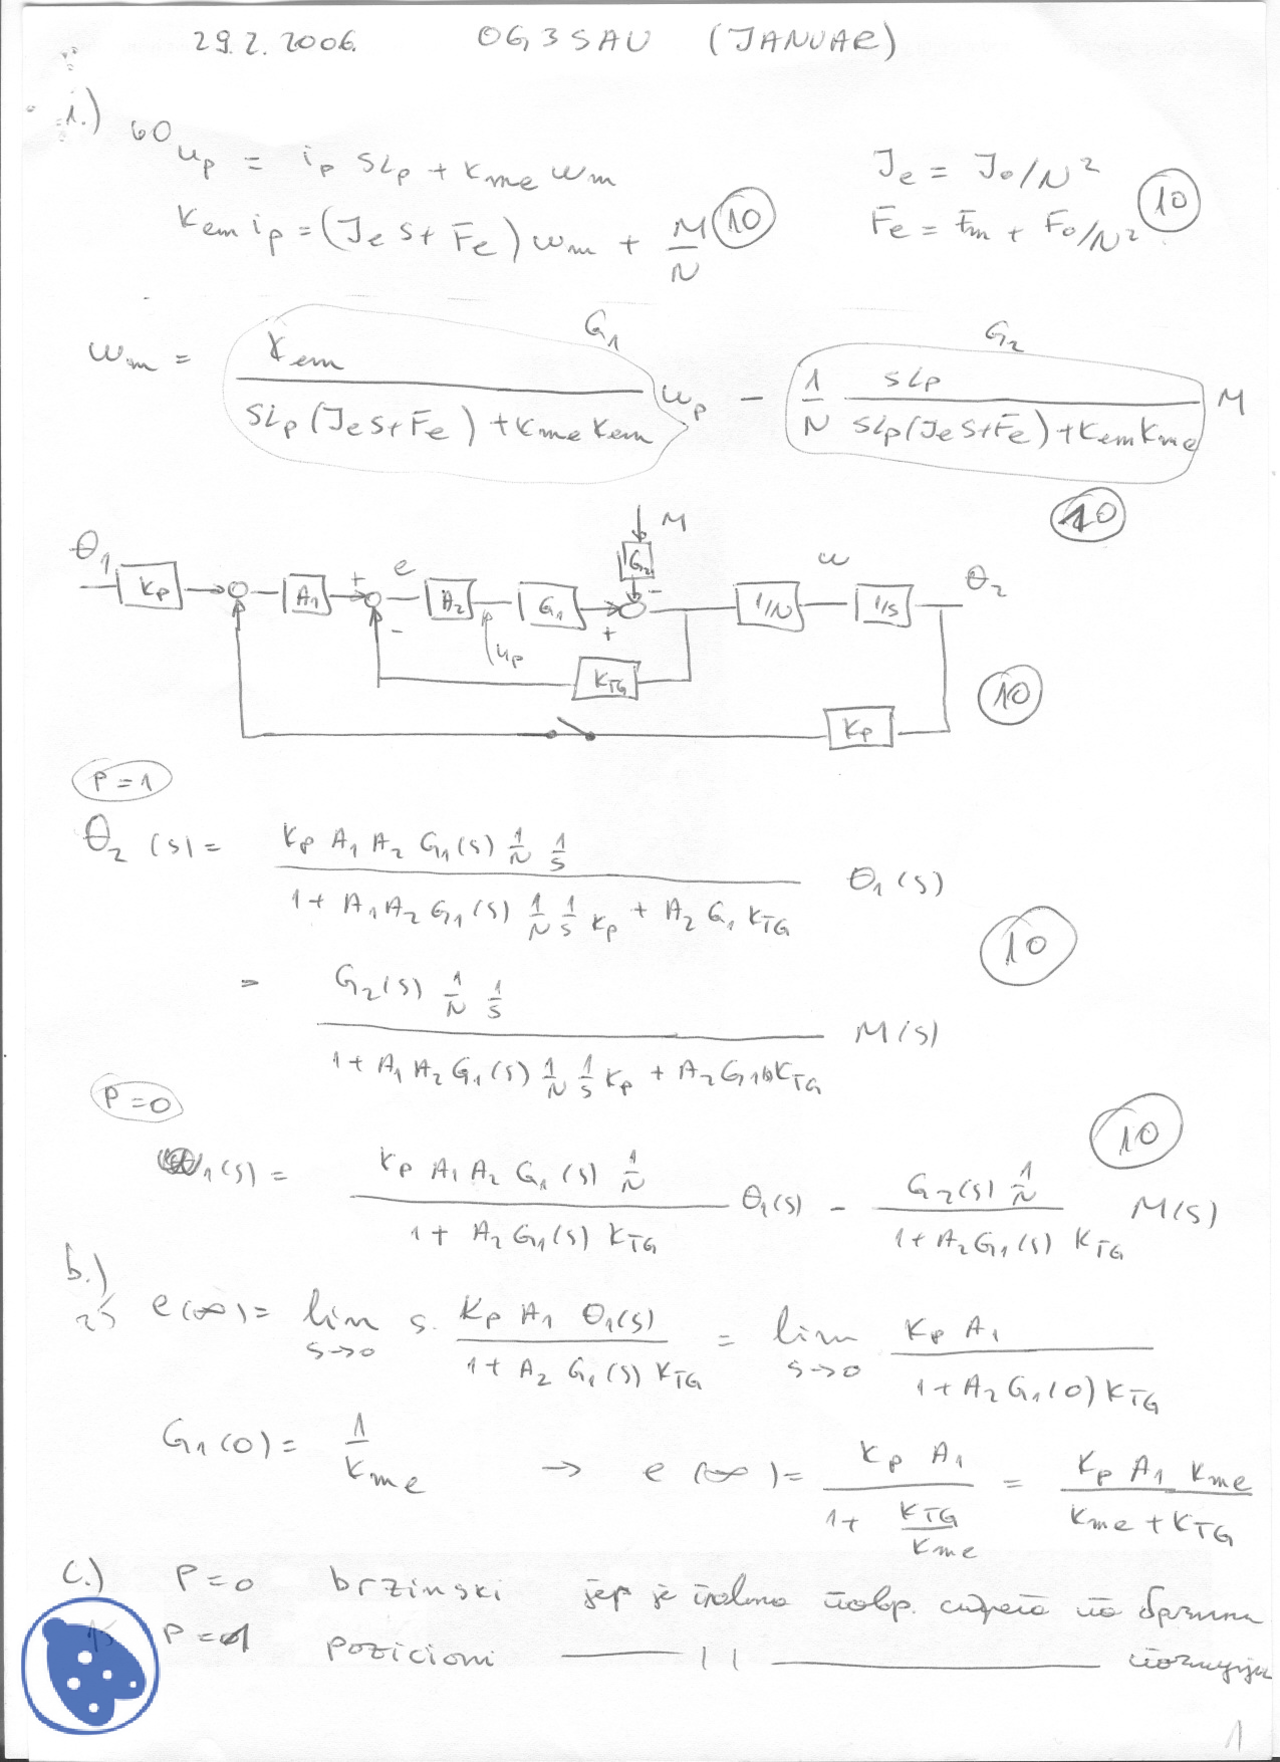 29.2.2006. OG3SAU (JANUAR)
1.) 60
u_p = i_p sL_p + K_me ω_m
J_e = J_o/N²
K_em i_p = (J_e s + F_e) ω_m + M/N (10)
F_e = F_m + F_o/N² (10)
G_1 G_2
ω_m = K_em / (sL_p(J_e s + F_e) + K_me K_em) u_p − 1/N sL_p / (sL_p(J_e s + F_e) + K_em K_me) M
(10)
M
θ_1 K_p A_1 + e A_2 G_1 G_2 − 1/N ω 1/s θ_2
− u_p + K_TG
(10)
K_p
P = 1
θ_2(s) = K_p A_1 A_2 G_1(s) 1/N 1/s / (1 + A_1 A_2 G_1(s) 1/N 1/s K_p + A_2 G_1 K_TG) θ_1(s)
(10)
= G_2(s) 1/N 1/s / (1 + A_1 A_2 G_1(s) 1/N 1/s K_p + A_2 G_1 K_TG) M(s)
P = 0
(10)
_1(s) = K_p A_1 A_2 G_1(s) 1/N / (1 + A_2 G_1(s) K_TG) θ_1(s) − G_2(s) 1/N / (1 + A_2 G_1(s) K_TG) M(s)
b.)
25 e(∞) = lim s→0 s · K_p A_1 θ_1(s) / (1 + A_2 G_1(s) K_TG) = lim s→0 K_p A_1 / (1 + A_2 G_1(0) K_TG)
G_1(0) = 1/K_me → e(∞) = K_p A_1 / (1 + K_TG/K_me) = K_p A_1 K_me / (K_me + K_TG)
c.) P = 0 brzinski јер је повр. спрега по брзини
15 P = 1 pozicioni —— 11 —— позицији
1